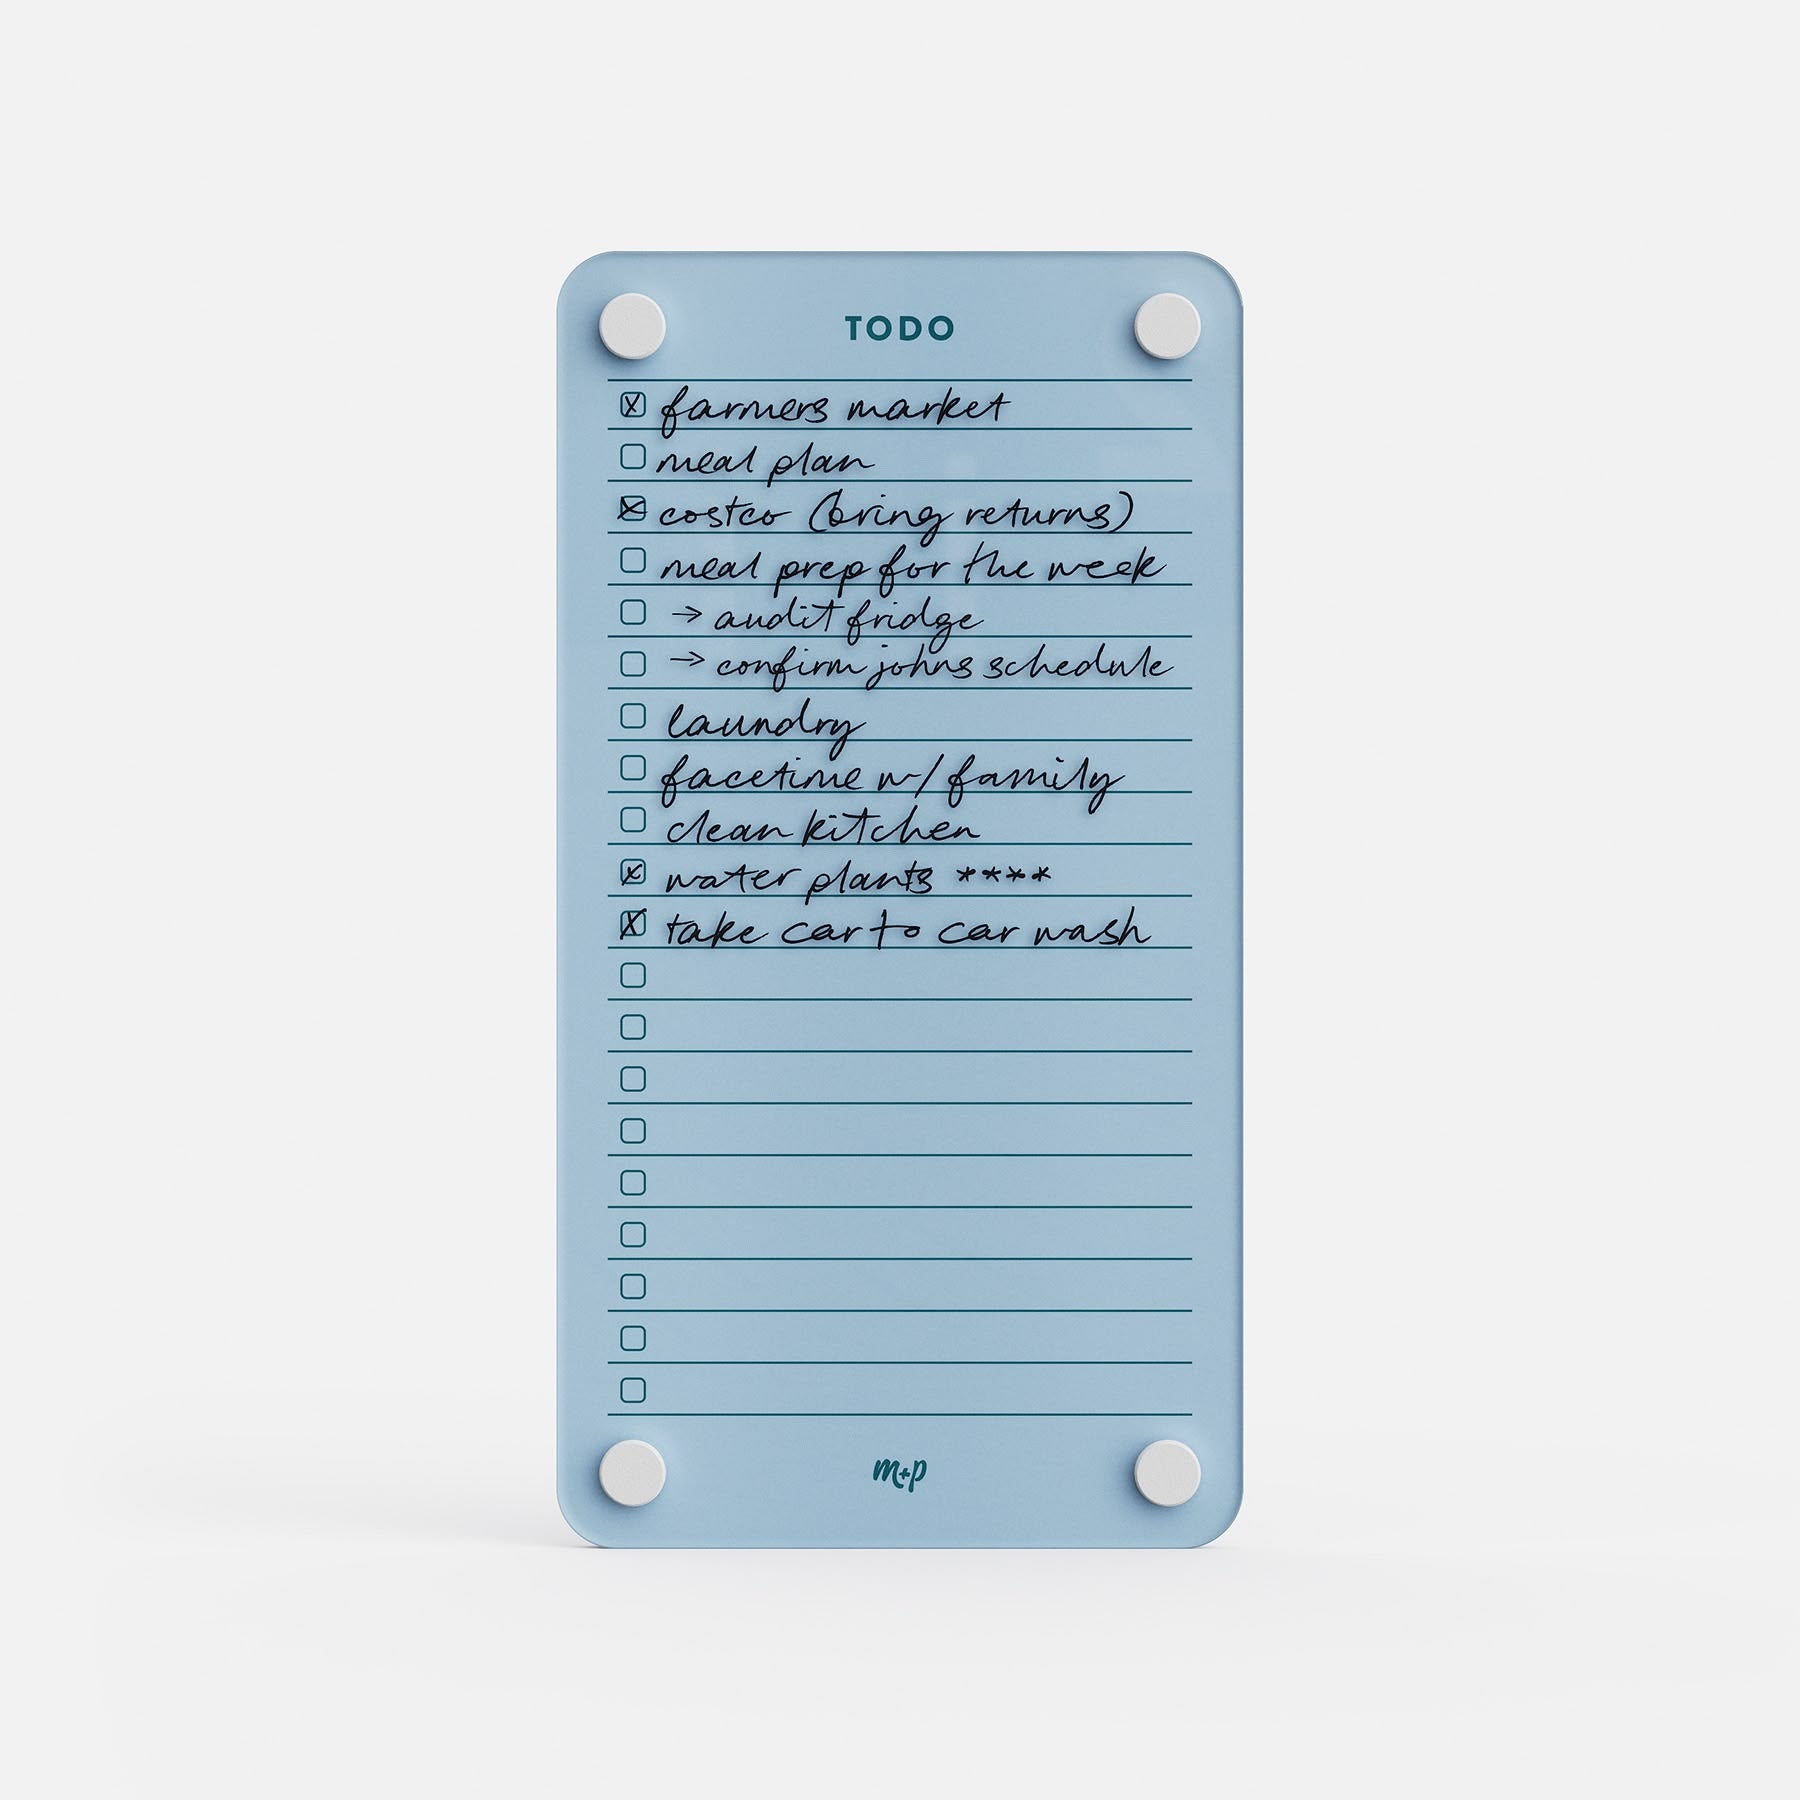 TODO
farmers market
meal plan
costco (bring returns)
meal prep for the week
→ audit fridge
→ confirm johns schedule
laundry
facetime w/ family
clean kitchen
water plants ****
take car to car wash
m+p